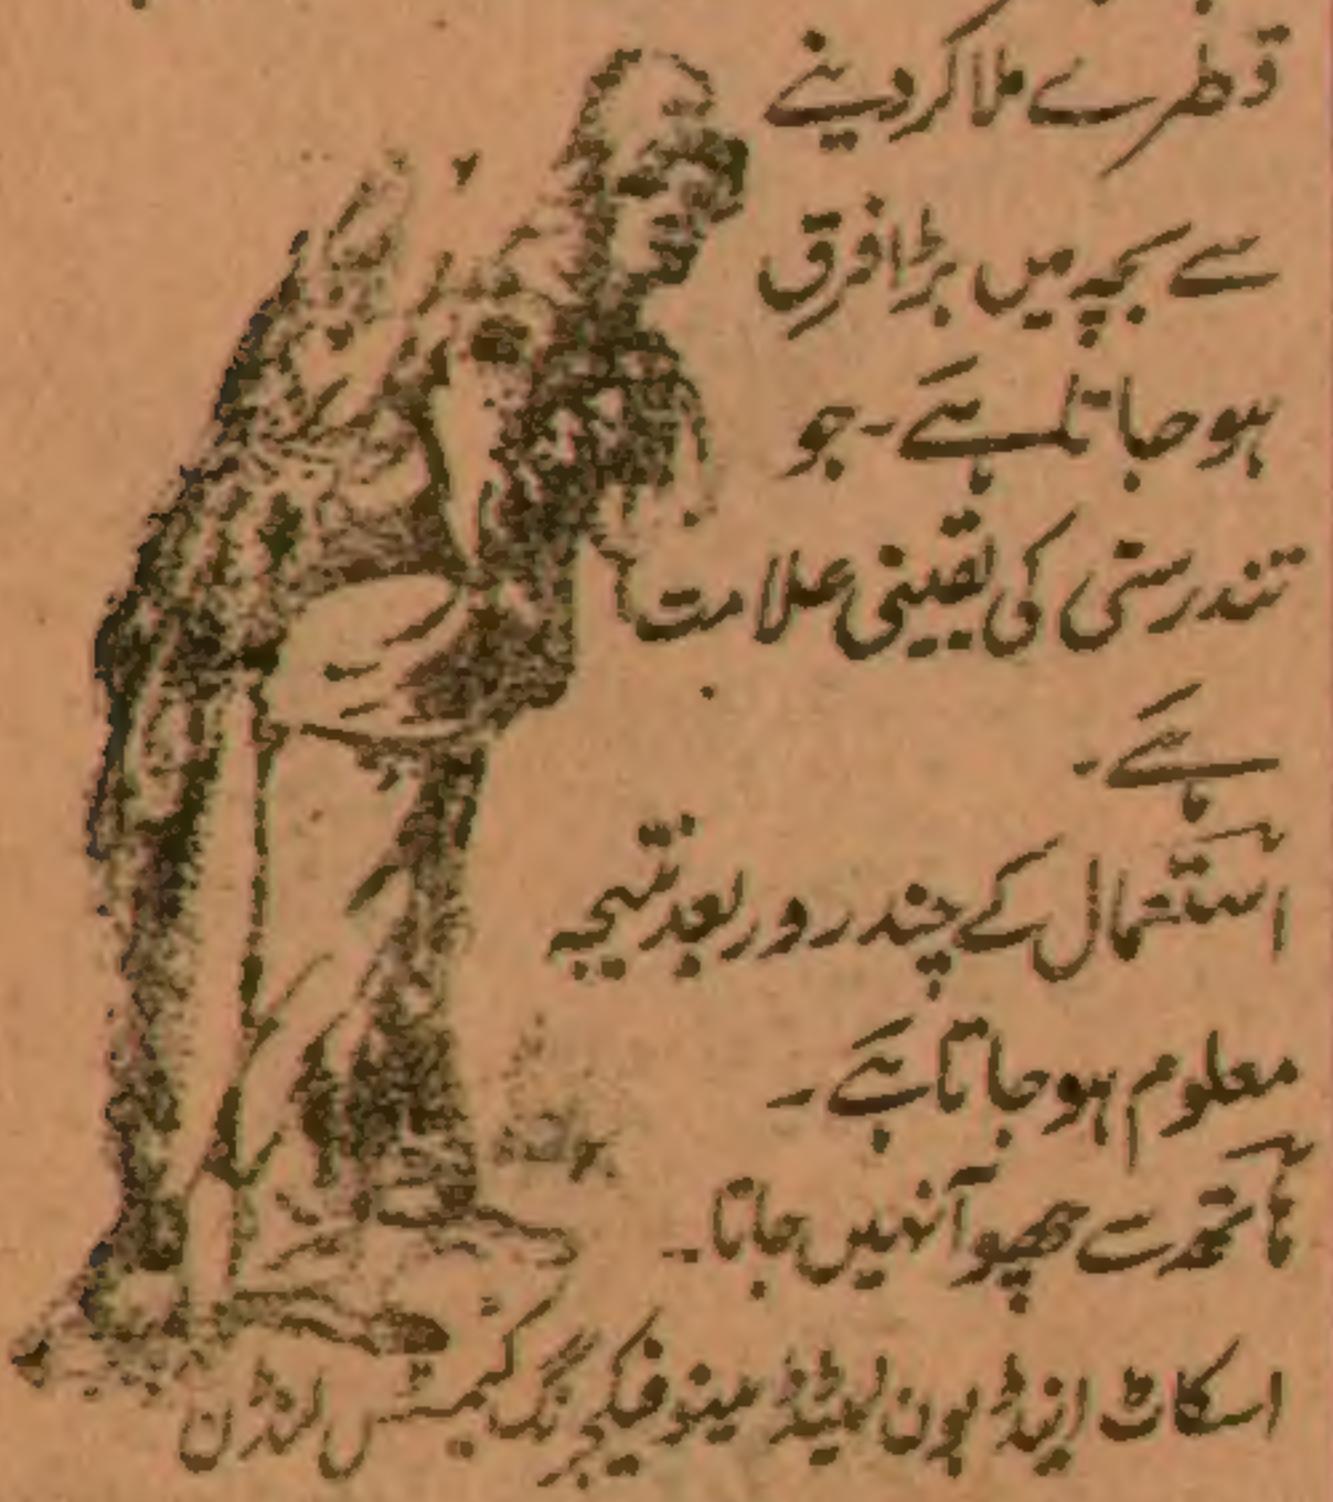 قطرے ملا کر دینے
سے بچہ میں بڑا فرق
ہو جاتا ہے - جو
تندرستی کی یقینی علامت
ہے -
استعمال کے چند روز بعد نتیجہ
معلوم ہو جاتا ہے -
ہاتھ سے چھوا نہیں جاتا -
اسکاٹ اینڈ بون لمیٹڈ مینوفیکچرنگ کیمسٹس لنڈن